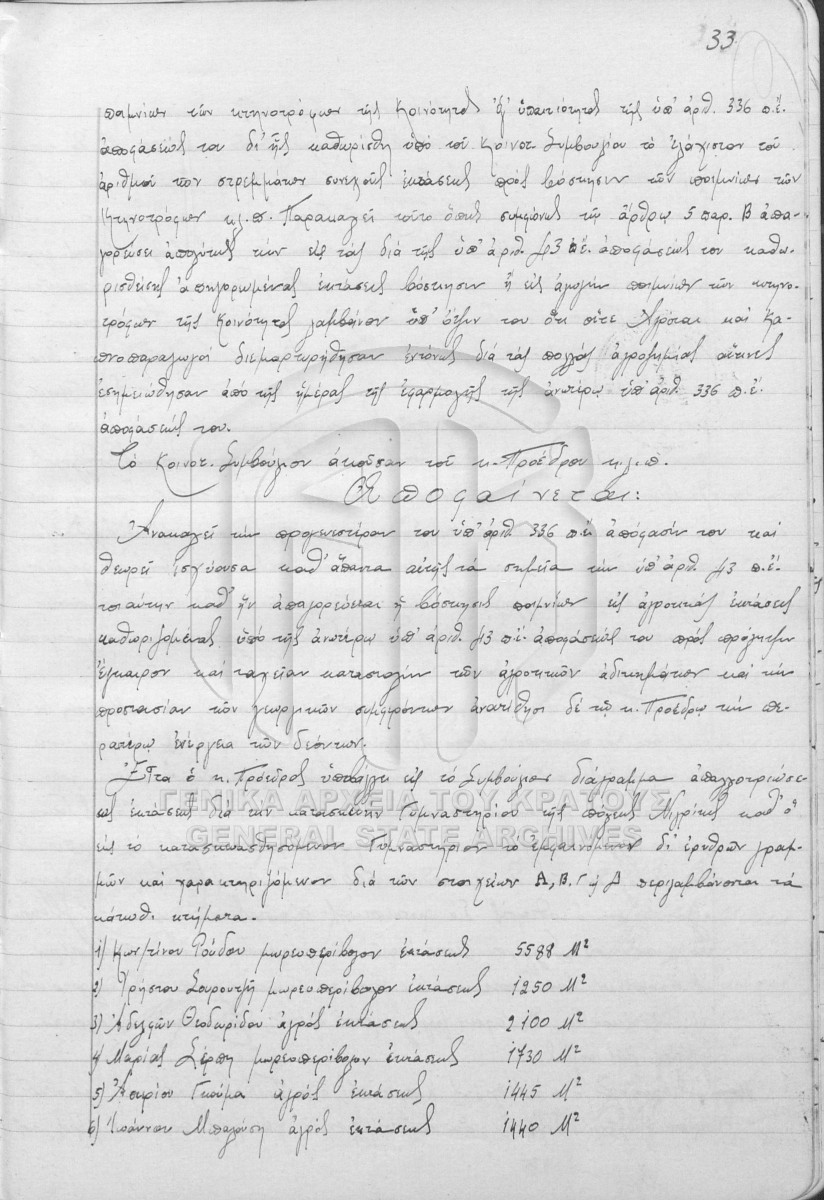 33
ποιμνίων τῶν κτηνοτρόφων τῆς Κοινότητος ἐξ ὑπαιτιότητος τῆς ὑπ' ἀριθ. 336 π.ἔ.
ἀποφάσεώς του δι' ἧς καθωρίσθη ὑπὸ τοῦ Κοινοτ. Συμβουλίου τὸ ἐλάχιστον τοῦ
ἀριθμοῦ τῶν στρεμμάτων συνεχοῦς ἐκτάσεως πρὸς βόσκησιν τῶν ποιμνίων τῶν
κτηνοτρόφων κ.λ.π. Παρακαλεῖ τοῦτο ὅπως συμφώνως τῷ ἄρθρῳ 5 παρ. Β ἀπα-
γορεύσει ἀπολύτως τὴν εἰς τὰς διὰ τῆς ὑπ' ἀριθ. 43 π.ἔ. ἀποφάσεώς του καθω-
ρισθείσας ἀπηγορευμένας ἐκτάσεις βόσκησιν ἢ εἰς ποιμνίων τῶν κτηνο-
τρόφων τῆς Κοινότητος λαμβάνον ὑπ' ὄψιν του ὅτι οὗτε Ἀγρόται καὶ Κα-
πνοπαραγωγοὶ διεμαρτυρήθησαν ἐντόνως διὰ τὰς πολλὰς ἀγροζημίας αἵτινες
ἐσημειώθησαν ἀπὸ τῆς ἡμέρας τῆς ἐφαρμογῆς τῆς ἀνωτέρω ὑπ' ἀριθ. 336 π.ἔ.
ἀποφάσεώς του.
Τὸ Κοινοτ. Συμβούλιον ἀκοῦσαν τοῦ κ. Προέδρου κ.λ.π.
Ἀποφαίνεται:
Ἀνακαλεῖ τὴν προγενεστέραν του ὑπ' ἀριθ. 336 π.ἔ. ἀπόφασίν του καὶ
θεωρεῖ ἰσχύουσα καθ' ἅπαντα αὐτῆς τὰ σημεῖα τὴν ὑπ' ἀριθ. 43 π.ἔ.
τοιαύτην καθ' ἣν ἀπαγορεύεται ἡ βόσκησις ποιμνίων εἰς ἀγροτικὰς ἐκτάσεις
καθωριζομένας ὑπὸ τῆς ἀνωτέρω ὑπ' ἀριθ. 43 π.ἔ. ἀποφάσεώς του πρὸς πρόληψιν
ἔγκαιρον καὶ ταχεῖαν καταστολὴν τῶν ἀγροτικῶν ἀδικημάτων καὶ τὴν
προστασίαν τῶν γεωργικῶν συμφερόντων ἀνατίθησι δὲ τῷ κ. Προέδρῳ τὴν πε-
ραιτέρω ἐνέργεια τῶν δεόντων.
Εἶτα ὁ κ. Πρόεδρος ὑποβάλλει εἰς τὸ Συμβούλιον διάγραμμα ἀπαλλοτριώσε-
ως ἐκτάσεως διὰ τὴν κατασκευὴν Γυμναστηρίου τῆς πόλεως Νιγρίτης καθ' ὃ
εἰς τὸ κατασκευασθησόμενον Γυμναστήριον τὸ ἐμφαινόμενον δι' ἐρυθρῶν γραμ-
μῶν καὶ χαρακτηριζόμενον διὰ τῶν στοιχείων Α, Β, Γ ἢ Δ περιλαμβάνονται τὰ
κάτωθι κτήματα.
1) Κων/τίνου Ρούδου μωρεοπερίβολον ἐκτάσεως 5588 Μ²
2) Χρήστου Σουρουτζῆ μωρεοπερίβολον ἐκτάσεως 1250 Μ²
3) Ἀδελφῶν Θεοδωρίδου ἀγρὸς ἐκτάσεως 2100 Μ²
4) Μαρίας Σέρπη μωρεοπερίβολον ἐκτάσεως 1730 Μ²
5) Ἀστερίου Γκούμα ἀγρὸς ἐκτάσεως 1445 Μ²
6) Ἰωάννου Μπαλούση ἀγρὸς ἐκτάσεως 1440 Μ²
ΓΕΝΙΚΑ ΑΡΧΕΙΑ ΤΟΥ ΚΡΑΤΟΥΣ
GENERAL STATE ARCHIVES